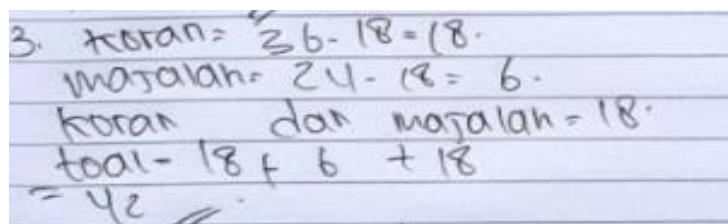 3. koran = 36 - 18 = 18.
majalah = 24 - 18 = 6.
koran dan majalah = 18.
toal - 18 + 6 + 18
= 42